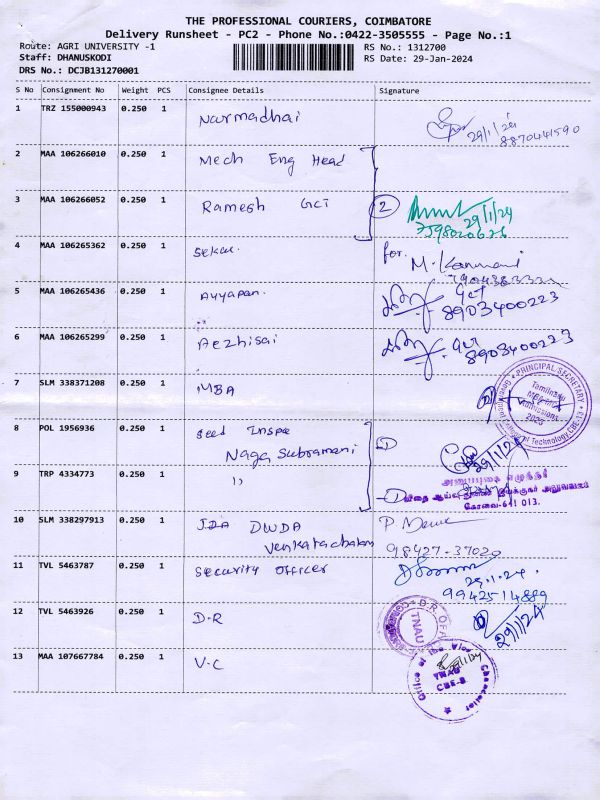 THE PROFESSIONAL COURIERS, COIMBATORE
Delivery Runsheet - PC2 - Phone No.:0422-3505555 - Page No.:1
Route: AGRI UNIVERSITY -1
RS No.: 1312700
Staff: DHANUSKODI
RS Date: 29-Jan-2024
DRS No.: DCJB131270001
S No Consignment No Weight PCS Consignee Details Signature
1 TRZ 155000943 0.250 1 Narmadhai 29/1/24
8870441590
2 MAA 106266010 0.250 1 Mech Eng Head
3 MAA 106266052 0.250 1 Ramesh GCT 2 29/1/24
4 MAA 106265362 0.250 1 Sekar. for. M. Kanmani
5 MAA 106265436 0.250 1 Ayyapan. GCT
8903400223
6 MAA 106265299 0.250 1 Aezhisai GCT
8903400223
7 SLM 338371208 0.250 1 MBA
PRINCIPAL/SECRETARY
Tamilnadu
MBA/MCA
Admissions
2023
Technology, CBE-13
8 POL 1956936 0.250 1 Seed Inspe
Naga Subramani
29/1/24
9 TRP 4334773 0.250 1 ,,
கோவை-641 013.
10 SLM 338297913 0.250 1 J.D.A DWDA
Venkatachalam
98427-37020
11 TVL 5463787 0.250 1 Security Officer
29.1.24.
9942514889
12 TVL 5463926 0.250 1 D.R 29/1/24
D.R. OFF
TNAU
13 MAA 107667784 0.250 1 V.C
Office of the Vice Chancellor
TNAU
CBE-3